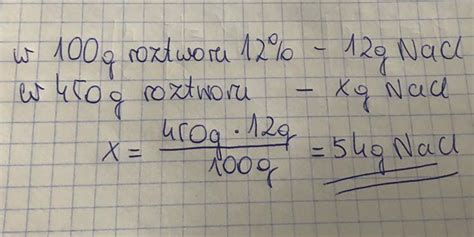 w 100g roztworu 12% - 12g NaCl
w 450g roztworu - xg NaCl
x = 450g · 12g / 100g = 54g NaCl